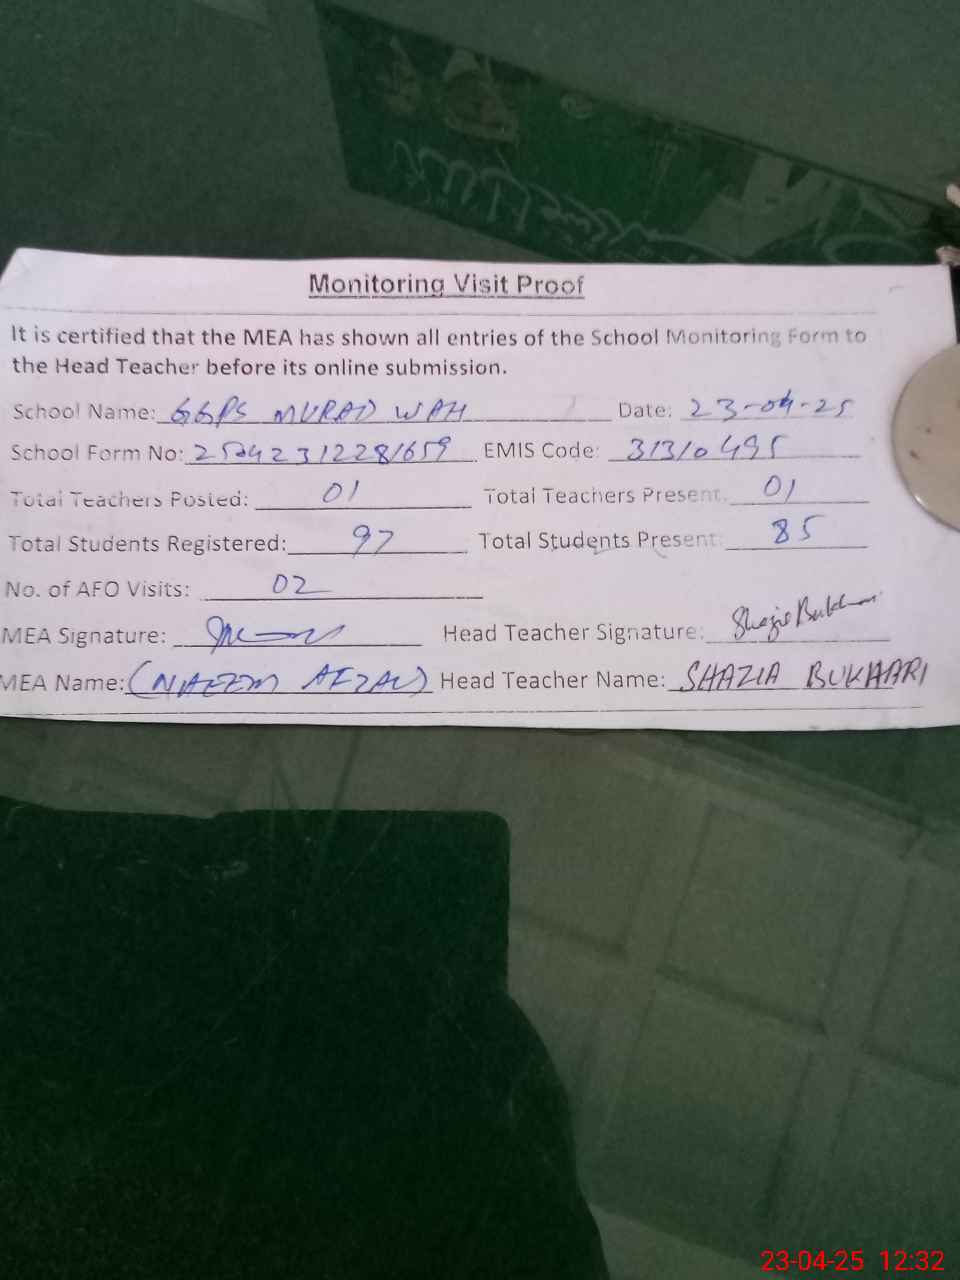 Monitoring Visit Proof
It is certified that the MEA has shown all entries of the School Monitoring Form to
the Head Teacher before its online submission.
School Name: GGPS MURAD WAH Date: 23-04-25
School Form No: 25042312281659 EMIS Code: 31310495
Total Teachers Posted: 01 Total Teachers Present: 01
Total Students Registered: 97 Total Students Present: 85
No. of AFO Visits: 02
MEA Signature: Head Teacher Signature: Shazia Bukhari
MEA Name: (NAEEM AFZAL) Head Teacher Name: SHAZIA BUKHARI
23-04-25 12:32